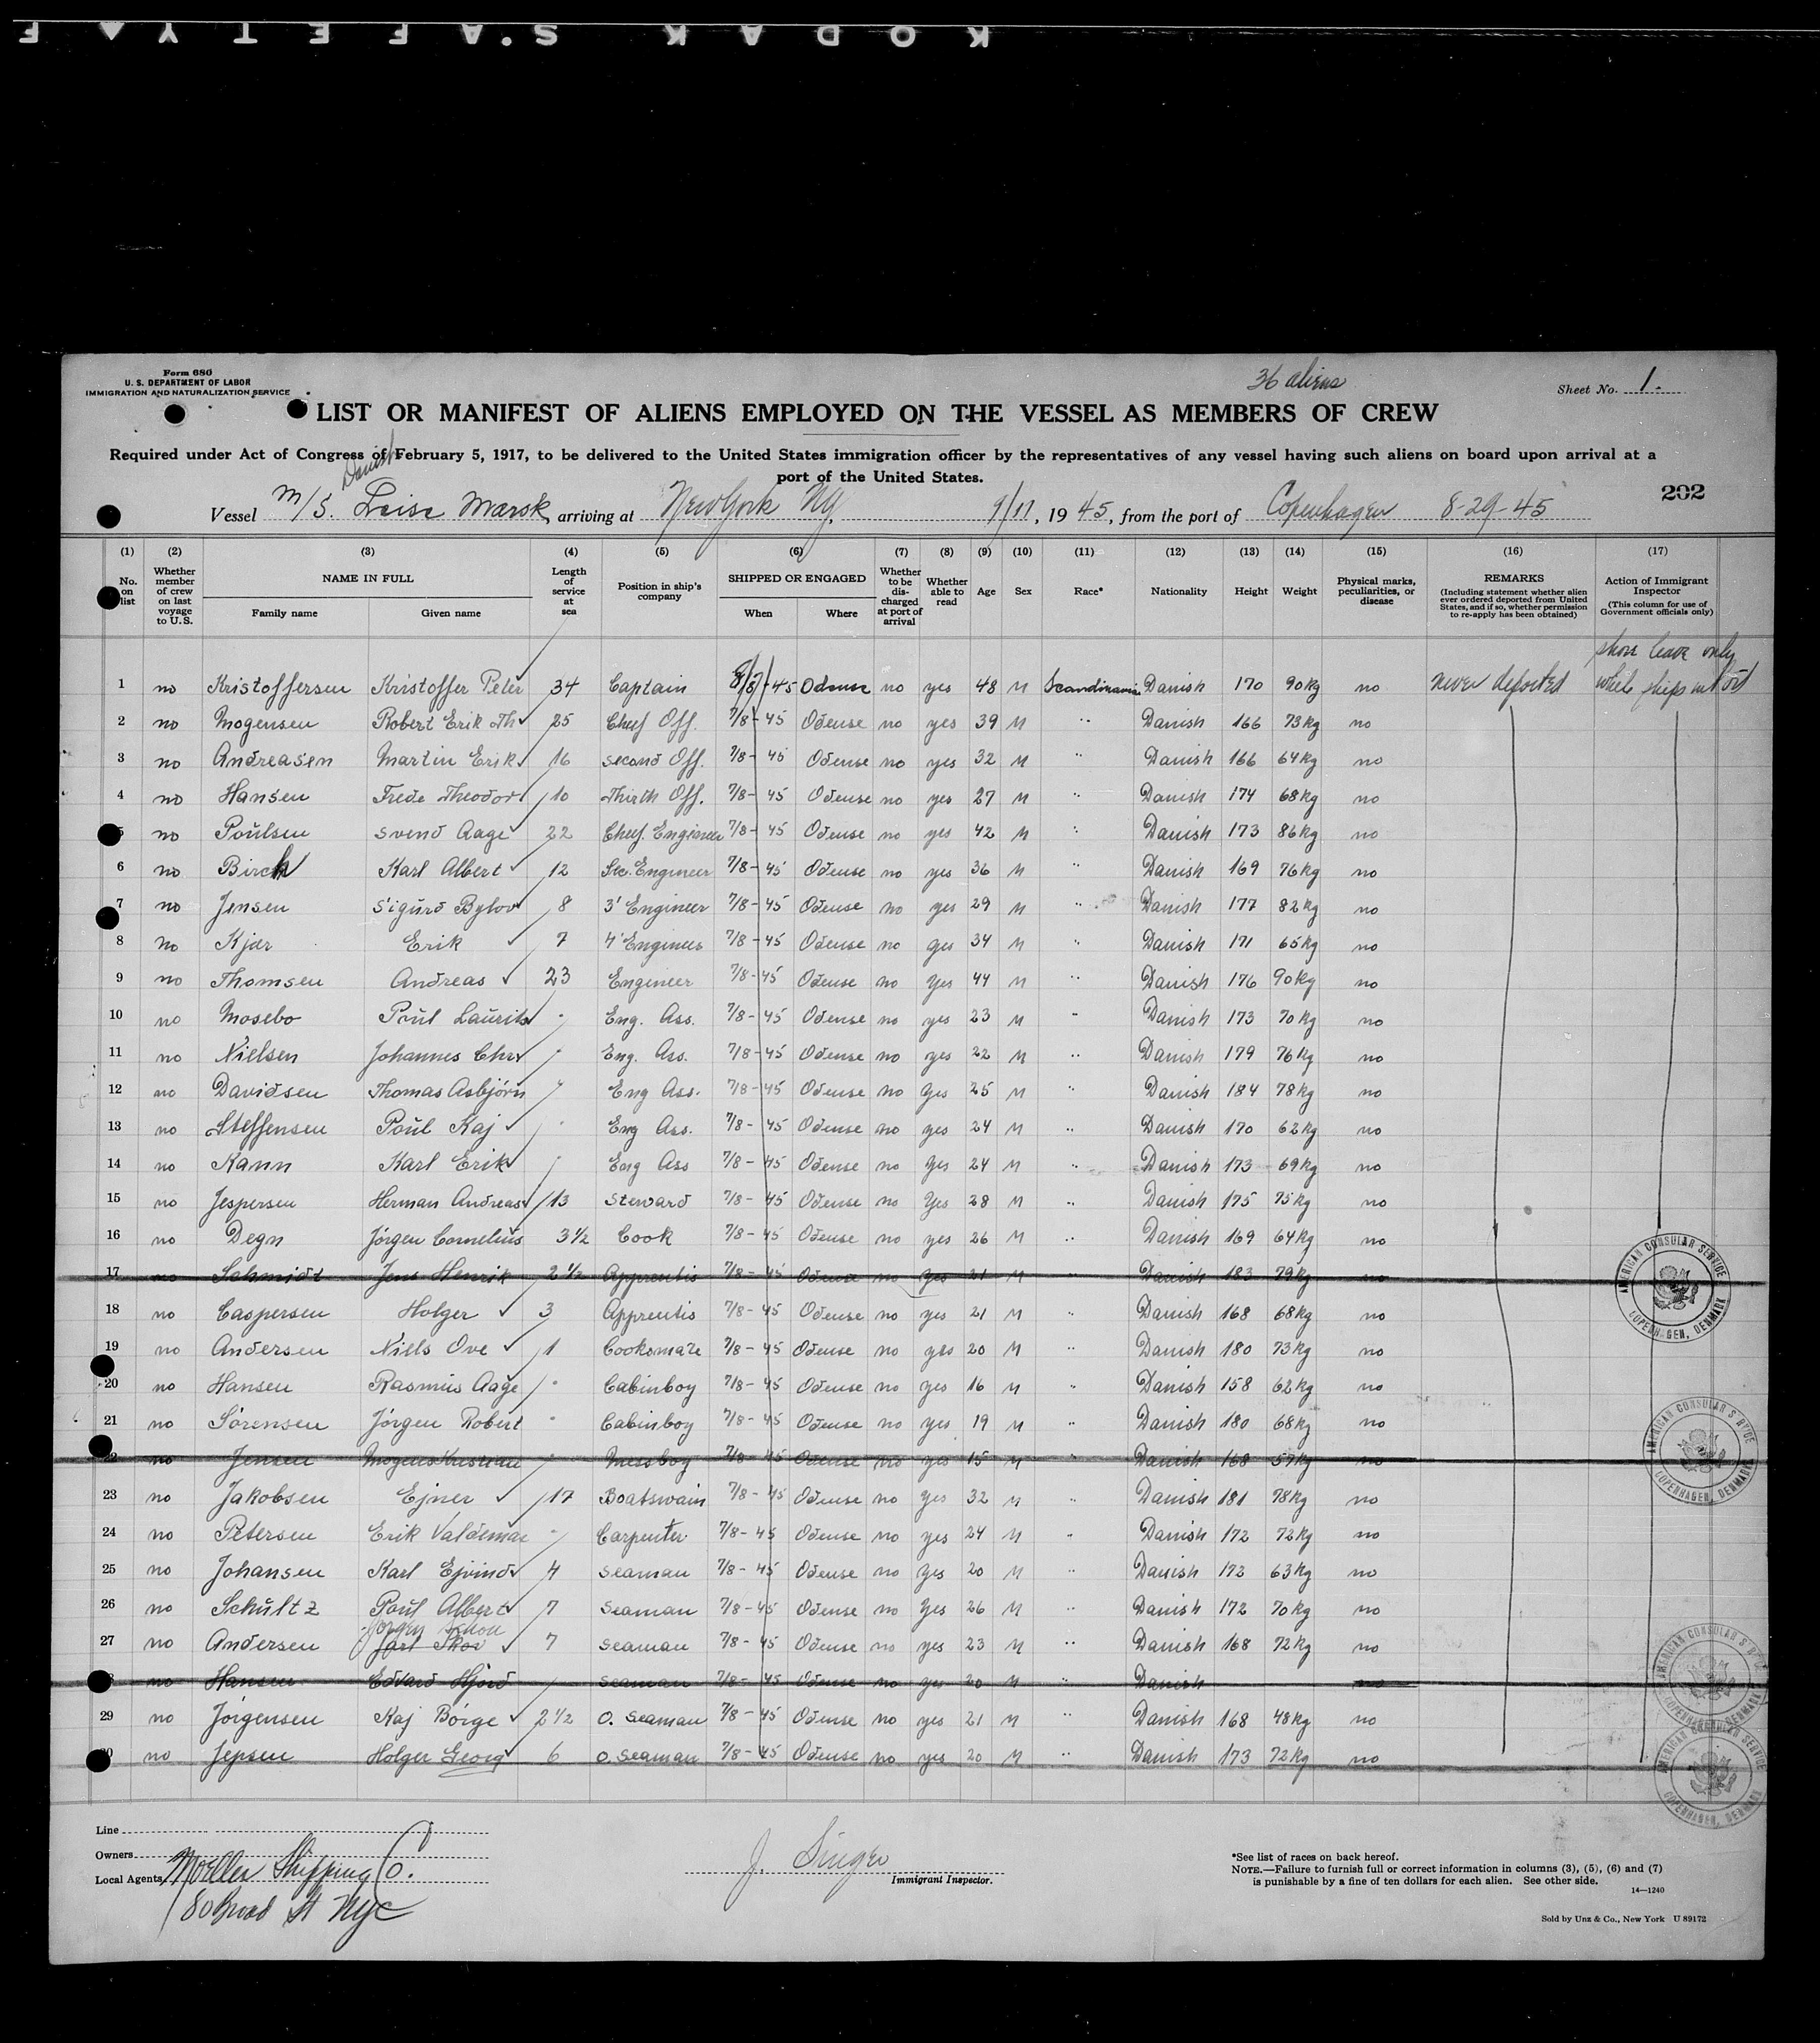 KODAK SAFETY F
Form 680
U. S. DEPARTMENT OF LABOR
IMMIGRATION AND NATURALIZATION SERVICE
36 aliens
Sheet No. 1.
LIST OR MANIFEST OF ALIENS EMPLOYED ON THE VESSEL AS MEMBERS OF CREW
Required under Act of Congress of February 5, 1917, to be delivered to the United States immigration officer by the representatives of any vessel having such aliens on board upon arrival at a
port of the United States.
Danish
202
Vessel M/S. Leise Marsk, arriving at New York NY, 9/11, 1945, from the port of Copenhagen 8-29-45
(1) (2) (3) (4) (5) (6) (7) (8) (9) (10) (11) (12) (13) (14) (15) (16) (17)
No. on list
Whether member of crew on last voyage to U.S.
NAME IN FULL
Family name Given name
Length of service at sea
Position in ship's company
SHIPPED OR ENGAGED
When Where
Whether to be discharged at port of arrival
Whether able to read
Age
Sex
Race*
Nationality
Height
Weight
Physical marks, peculiarities, or disease
REMARKS
(Including statement whether alien ever ordered deported from United States, and if so, whether permission to re-apply has been obtained)
Action of Immigrant Inspector
(This column for use of Government officials only)
shore leave only
1 no Kristoffersen Kristoffer Peter 34 Captain 8/8-45 Odense no yes 48 M Scandinavia Danish 170 90kg no never deported while ships in port
2 no Mogensen Robert Erik Th 25 Cheef Off. 7/8-45 Odense no yes 39 M " Danish 166 73kg no
3 no Andreasen Martin Erik 16 second Off. 7/8-45 Odense no yes 32 M " Danish 166 64kg no
4 no Hansen Frede Theodor 10 Thirth Off. 7/8-45 Odense no yes 27 M " Danish 174 68kg no
5 no Poulsen Svend Aage 22 Cheef. Engineer 7/8-45 Odense no yes 42 M " Danish 173 86kg no
6 no Birch Karl Albert 12 Sec. Engineer 7/8-45 Odense no yes 36 M " Danish 169 76kg no
7 no Jensen Sigurd Bylov 8 3' Engineer 7/8-45 Odense no yes 29 M " Danish 177 82kg no
8 no Kjar Erik 7 4' Engineer 7/8-45 Odense no yes 34 M " Danish 171 65kg no
9 no Thomsen Andreas 23 Engineer 7/8-45 Odense no yes 44 M " Danish 176 90kg no
10 no Mosebo Poul Laurits " Eng. Ass. 7/8-45 Odense no yes 23 M " Danish 173 70kg no
11 no Nielsen Johannes Chr " Eng. Ass. 7/8-45 Odense no yes 22 M " Danish 179 76kg no
12 no Davidsen Thomas Asbjörn " Eng Ass. 7/8-45 Odense no yes 25 M " Danish 184 78kg no
13 no Steffensen Poul Kaj " Eng Ass. 7/8-45 Odense no yes 24 M " Danish 170 62kg no
14 no Kann Karl Erik " Eng Ass 7/8-45 Odense no yes 24 M " Danish 173 69kg no
15 no Jespersen Herman Andreas 13 Steward 7/8-45 Odense no yes 28 M " Danish 175 75kg no
16 no Degn Jörgen Cornelius 3½ Cook 7/8-45 Odense no yes 26 M " Danish 169 64kg no
17 no Schmidt Jens Henrik 2½ Apprentis 7/8-45 Odense no yes 21 M " Danish 183 79kg no
18 no Caspersen Holger 3 Apprentis 7/8-45 Odense no yes 21 M " Danish 168 68kg no
19 no Andersen Niels Ove 1 Cooksmate 7/8-45 Odense no yes 20 M " Danish 180 73kg no
20 no Hansen Rasmus Aage " Cabinboy 7/8-45 Odense no yes 16 M " Danish 158 62kg no
21 no Sörensen Jörgen Robert " Cabinboy 7/8-45 Odense no yes 19 M " Danish 180 68kg no
22 no Jensen Mogens Kristian " Messboy 7/8-45 Odense no yes 15 M " Danish 168 57kg no
23 no Jakobsen Ejner 17 Boatswain 7/8-45 Odense no yes 32 M " Danish 181 78kg no
24 no Petersen Erik Valdemar " Carpenter 7/8-45 Odense no yes 24 M " Danish 172 72kg no
25 no Johansen Karl Ejvind 4 Seaman 7/8-45 Odense no yes 20 M " Danish 172 63kg no
26 no Schultz Poul Albert 7 Seaman 7/8-45 Odense no yes 26 M " Danish 172 70kg no
Jörgen Schou
27 no Andersen Jarl Skov 7 Seaman 7/8-45 Odense no yes 23 M " Danish 168 72kg no
28 no Hansen Edvard Hjörd Seaman 7/8-45 Odense no yes 20 M " Danish no
29 no Jörgensen Kaj Börge 2½ O. Seaman 7/8-45 Odense no yes 21 M " Danish 168 48kg no
30 no Jepsen Holger Georg 6 O. Seaman 7/8-45 Odense no yes 20 M " Danish 173 72kg no
AMERICAN CONSULAR SERVICE COPENHAGEN, DENMARK
AMERICAN CONSULAR SERVICE COPENHAGEN, DENMARK
AMERICAN CONSULAR SERVICE COPENHAGEN, DENMARK
AMERICAN CONSULAR SERVICE COPENHAGEN, DENMARK
Line
Owners
Local Agents Moeller Shipping Co.
80 Broad St NYC
J. Singer
Immigrant Inspector.
*See list of races on back hereof.
NOTE.—Failure to furnish full or correct information in columns (3), (5), (6) and (7)
is punishable by a fine of ten dollars for each alien. See other side.
14—1240
Sold by Unz & Co., New York U 89172